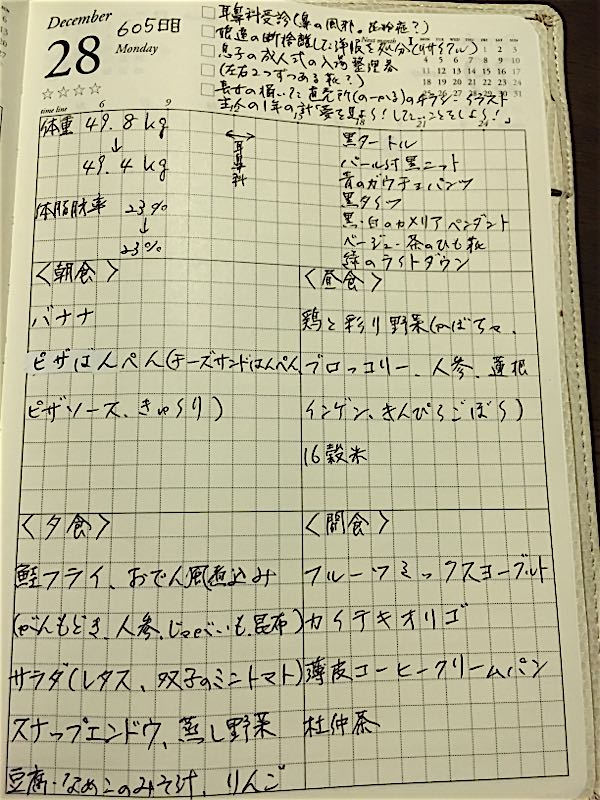 December
28
Monday
605日目
☆☆☆☆
耳鼻科受診(鼻の風邪。花粉症?)
断捨離した洋服を処分(リサイクル)
息子の成人式の入場整理券
(左右2つずつある靴?)
長女の描いた直売所(のーかる)のチラシ・イラスト
Next month
time line 6 9 15 18 21 24
体重 49.8kg
↓
49.4 kg
体脂肪率 23%
↓
23%
耳鼻科
黒タートル
パール付黒ニット
青のガウチョパンツ
黒タイツ
黒・白のカメリアペンダント
ベージュ・茶のひも靴
緑のライトダウン
<朝食>
バナナ
ピザはんぺん(チーズサンドはんぺん
ピザソース、きゅうり)
<昼食>
鶏と彩り野菜(かぼちゃ、
ブロッコリー、人参、蓮根
インゲン、きんぴらごぼう)
16穀米
<夕食>
鮭フライ、おでん風煮込み
(がんもどき、人参、じゃがいも、昆布)
サラダ(レタス、双子のミニトマト)
スナップエンドウ、蒸し野菜
豆腐・なめこのみそ汁、りんご
<間食>
フルーツミックスヨーグルト
カイテキオリゴ
薄皮コーヒークリームパン
杜仲茶